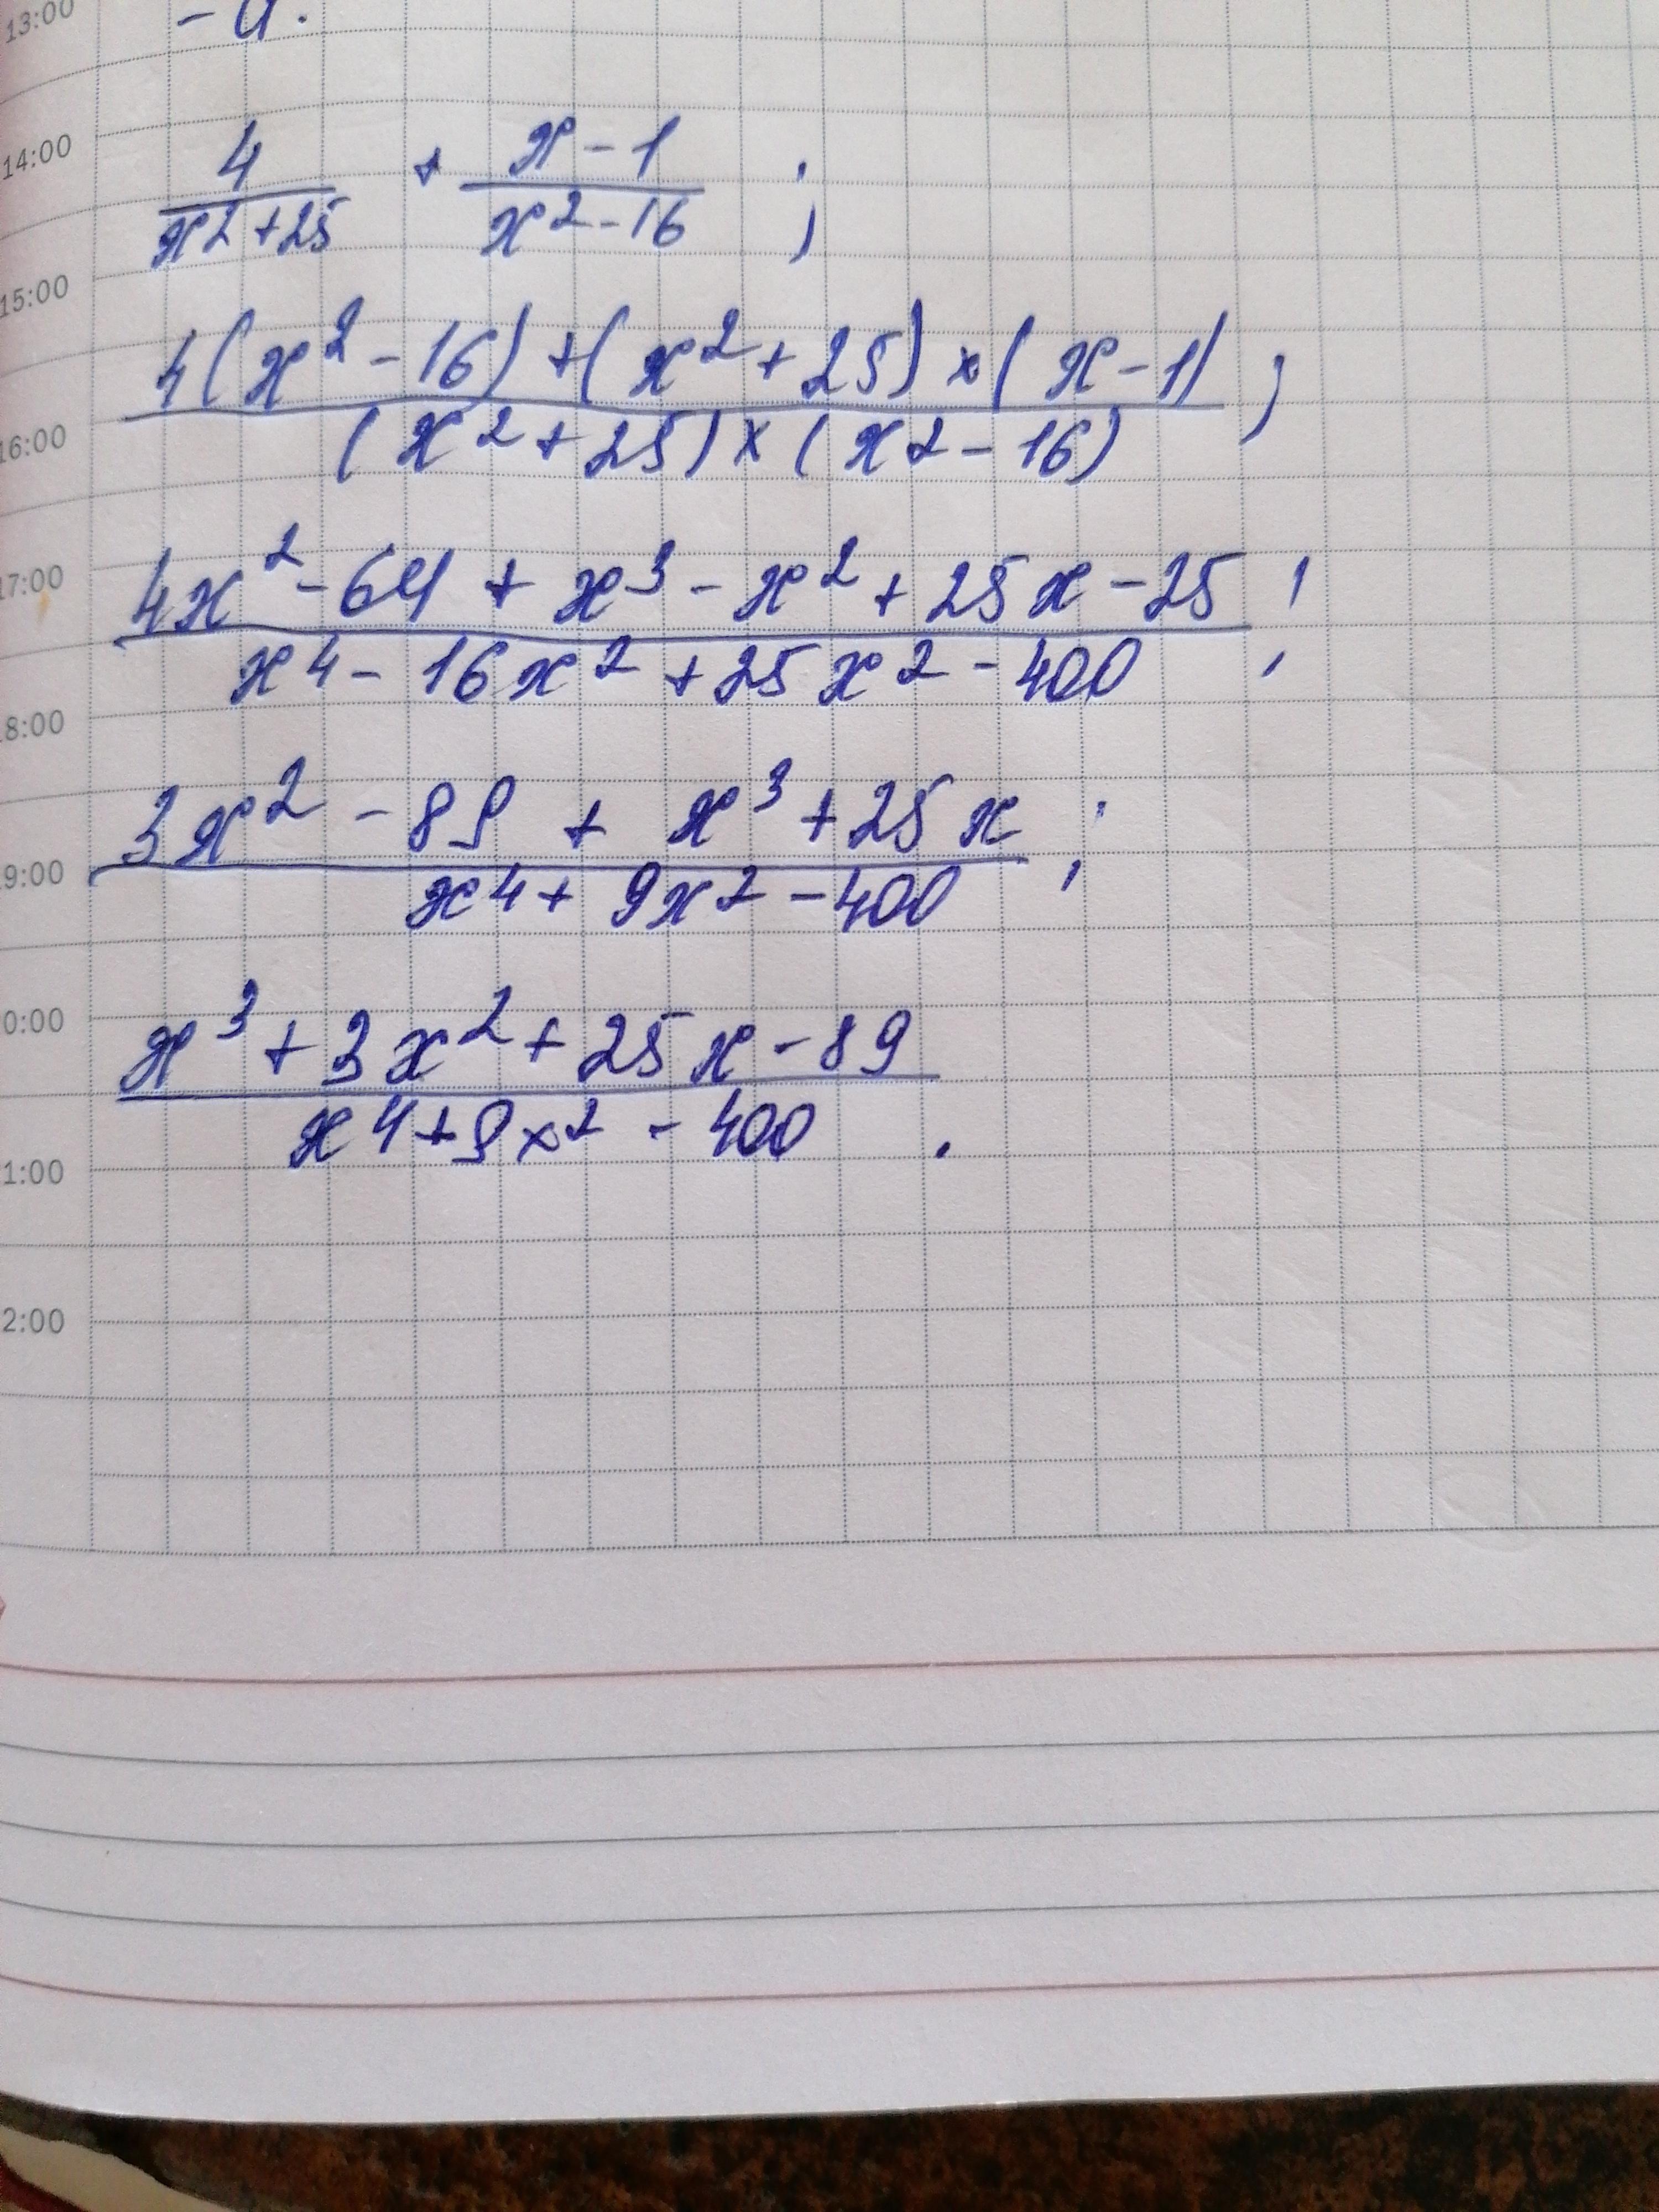 13:00
14:00
4/(x² + 25) + (x - 1)/(x² - 16) ;
15:00
(4(x² - 16) + (x² + 25) × (x - 1))/((x² + 25) × (x² - 16)) ;
16:00
17:00
(4x² - 64 + x³ - x² + 25x - 25)/(x⁴ - 16x² + 25x² - 400) ;
8:00
(3x² - 89 + x³ + 25x)/(x⁴ + 9x² - 400) ;
9:00
0:00
(x³ + 3x² + 25x - 89)/(x⁴ + 9x² - 400) .
1:00
2:00